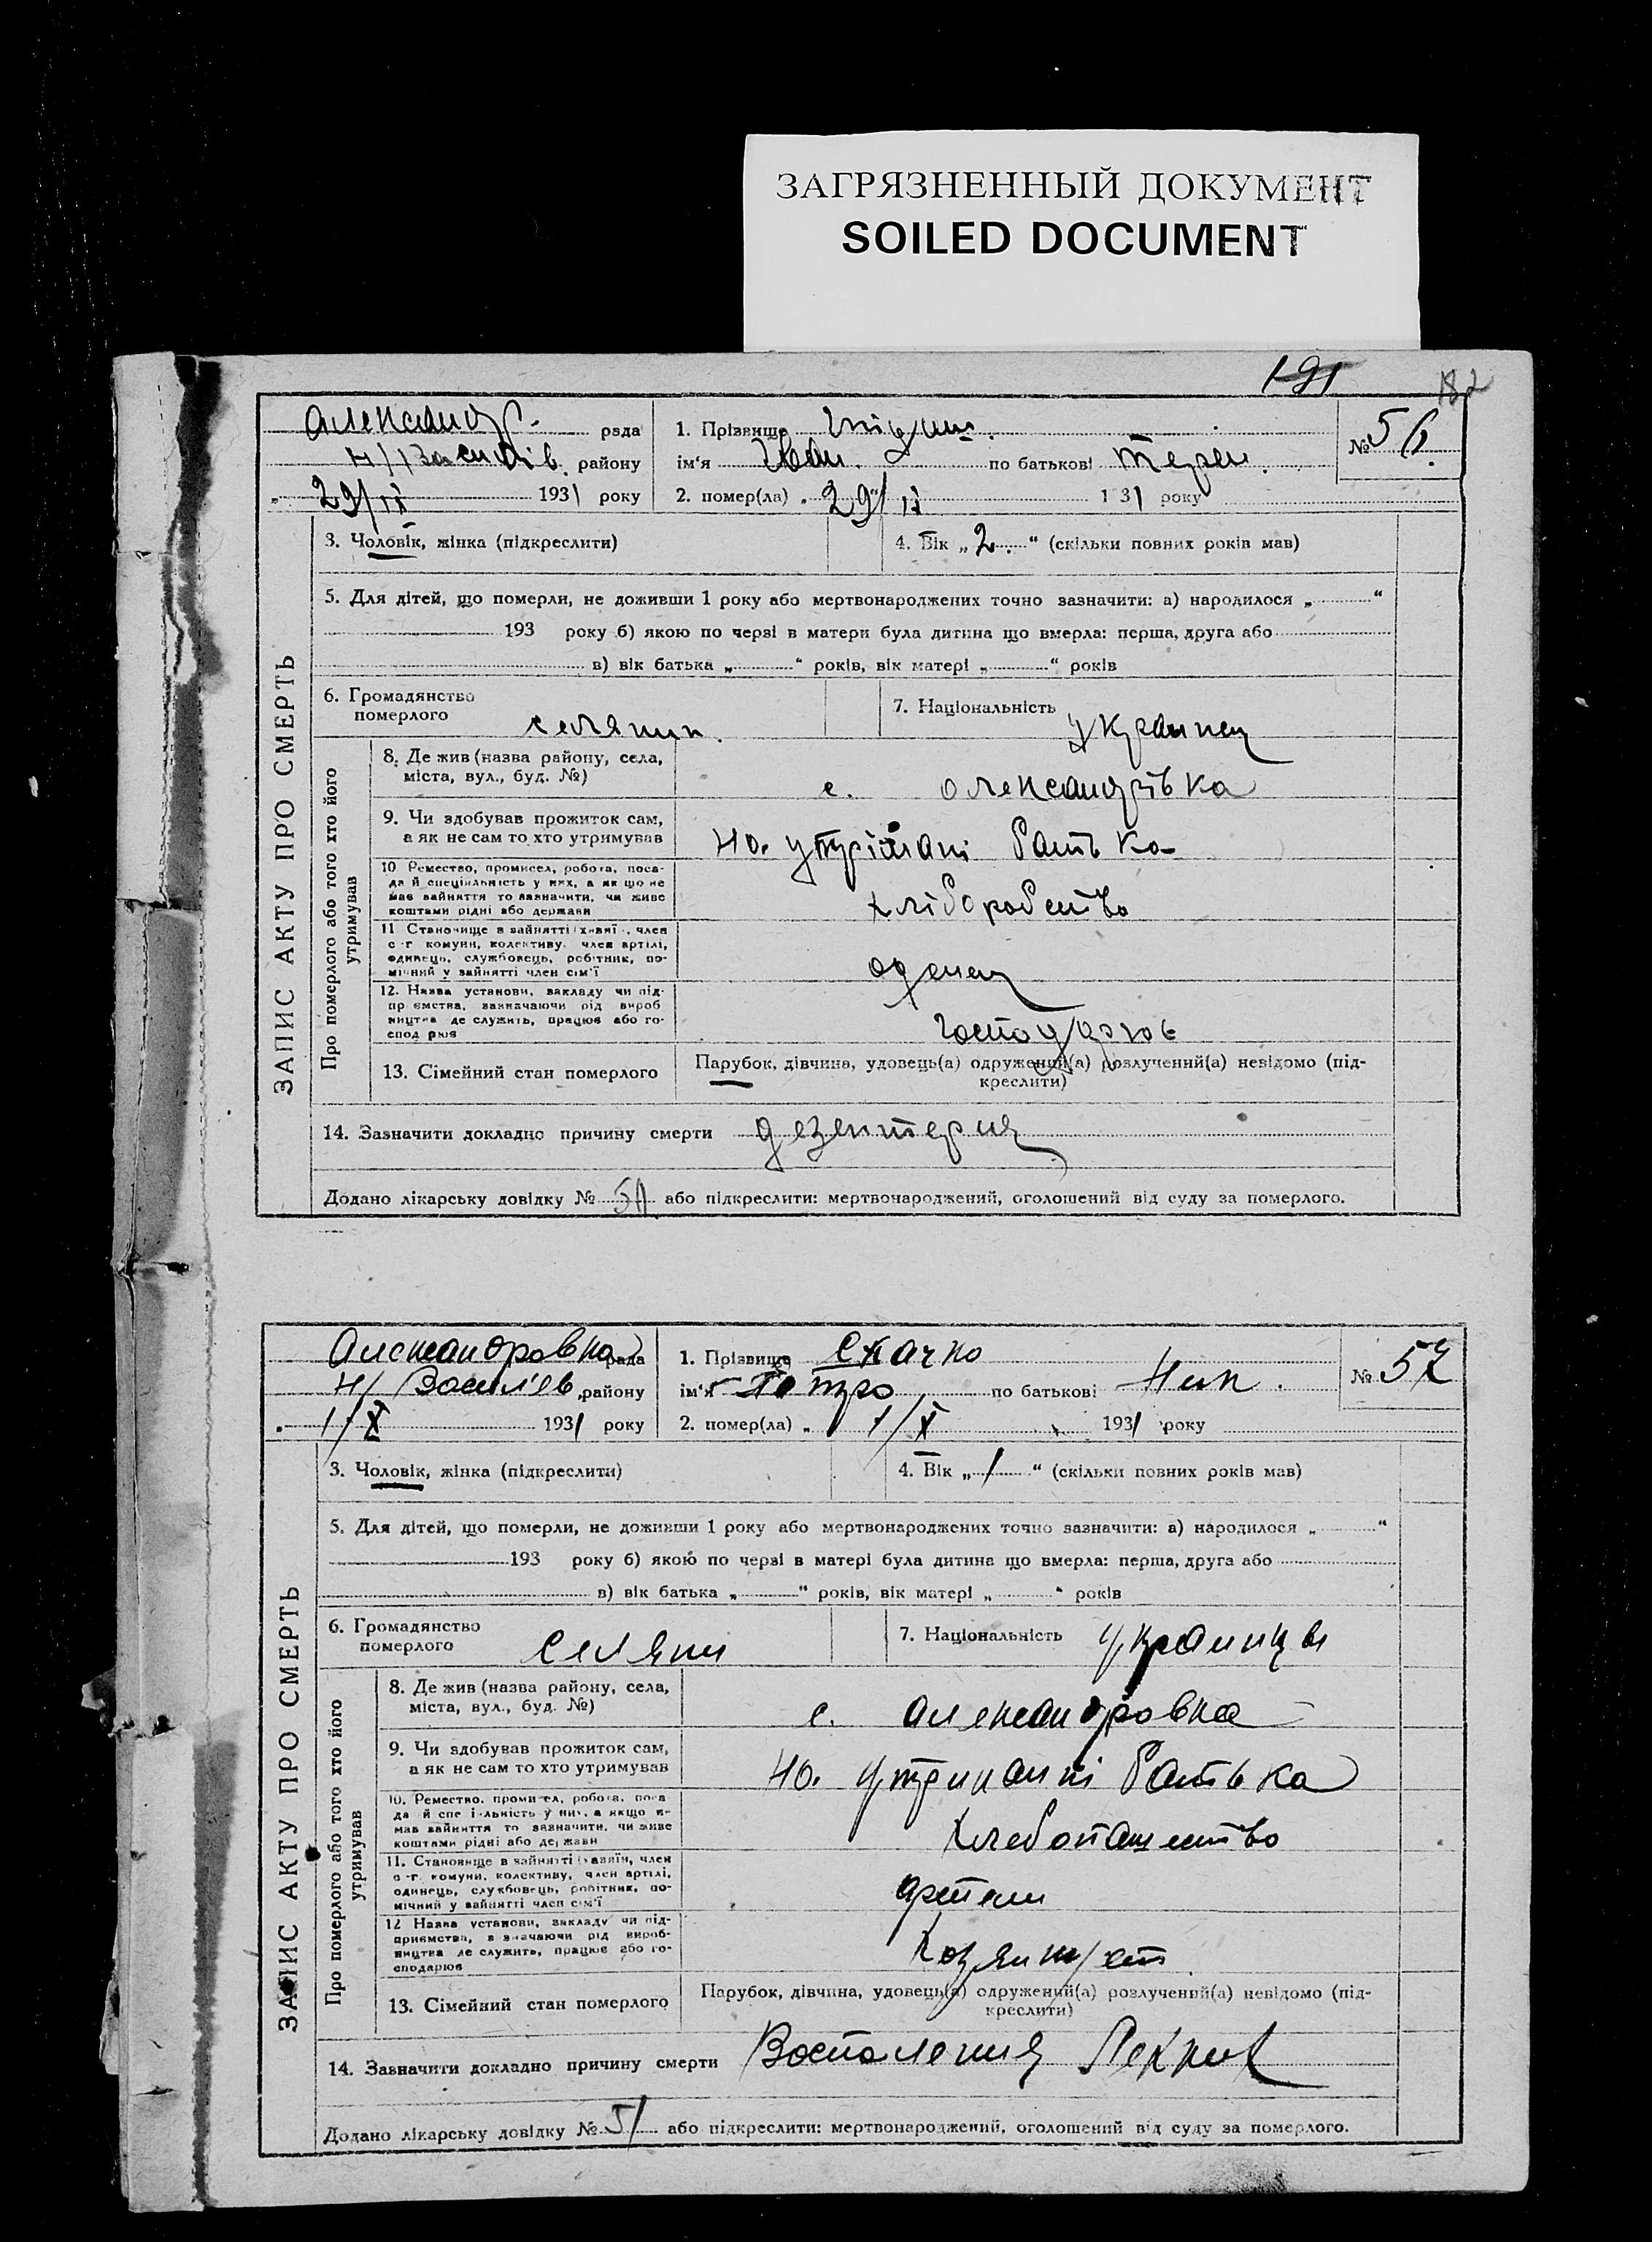 ЗАГРЯЗНЕННЫЙ ДОКУМЕНТ
SOILED DOCUMENT
191
182
Александр. рада
Н/Василів. району
" 29/IX 1931 року
1. Прізвище
ім'я Іван. по батькові Терен.
№ 56.
2. помер(ла) " 29/IX 1931 року
ЗАПИС АКТУ ПРО СМЕРТЬ
3. Чоловік, жінка (підкреслити)
4. Вік „2." (скільки повних років мав)
5. Для дітей, що померли, не доживши 1 року або мертвонароджених точно зазначити: а) народилося „ "
193 року б) якою по черзі в матери була дитина що вмерла: перша, друга або
в) вік батька „ " років, вік матері „ " років
6. Громадянство
померлого селянин.
7. Національність украинец
Про померлого або того хто його
утримував
8. Де жив (назва району, села,
міста, вул., буд. №)
с. олександрівка
9. Чи здобував прожиток сам,
а як не сам то хто утримував
на утрімані батька
10 Ремество, промисел, робота, поса-
да й спеціяльність у них, а як що не
має зайняття то зазначити, чи живе
коштами рідні або держави
хліборобство
11 Становище в зайнятті (хазяїн, член
с-г комуни, колективу, член артілі,
одинець, службовець, робітник, по-
мічний у зайнятті член сім'ї
12. Назва установи, закладу чи під-
приємства, зазначаючи рід вироб
ництва де служить, працює або го-
сподарює
господарює
13. Сімейний стан померлого
Парубок, дівчина, удовець(а) одружений(а) розлучений(а) невідомо (під-
креслити)
14. Зазначити докладно причину смерти дезентерия
Додано лікарську довідку № або підкреслити: мертвонароджений, оголошений від суду за померлого.
Александровка рада
Н/Василiев. району
" 1/X 1931 року
1. Прізвище Скачко
ім'я Петро по батькові Ник.
№ 57
2. помер(ла) „ 1/X 1931 року
ЗАПИС АКТУ ПРО СМЕРТЬ
3. Чоловік, жінка (підкреслити)
4. Вік „1" (скільки повних років мав)
5. Для дітей, що померли, не доживши 1 року або мертвонароджених точно зазначити: а) народилося „ "
193 року б) якою по черзі в матері була дитина що вмерла: перша, друга або
в) вік батька „ " років, вік матері „ " років
6. Громадянство
померлого селяни
7. Національність украинцы
Про померлого або того хто його
утримував
8. Де жив (назва району, села,
міста, вул., буд. №)
с. александровка
9. Чи здобував прожиток сам,
а як не сам то хто утримував
на утриманні батька
10. Ремество, промисел, робота, поса-
да й спеціяльність у них, а якщо не
має зайняття то зазначити, чи живе
коштами рідні або держави
хлебопашество
11. Становище в зайнятті (хазяїн, член
с-г. комуни, колективу, член артілі,
одинець, службовець, робітник, по-
мічний у зайнятті член сім'ї
артели
12 Назва установи, закладу чи під-
приємства, зазначаючи рід вироб-
ництва де служить, працює або го-
сподарює
13. Сімейний стан померлого
Парубок, дівчина, удовець(а) одружений(а) розлучений(а) невідомо (під-
креслити)
14. Зазначити докладно причину смерти Воспаления
Додано лікарську довідку № 51 або підкреслити: мертвонароджений, оголошений від суду за померлого.